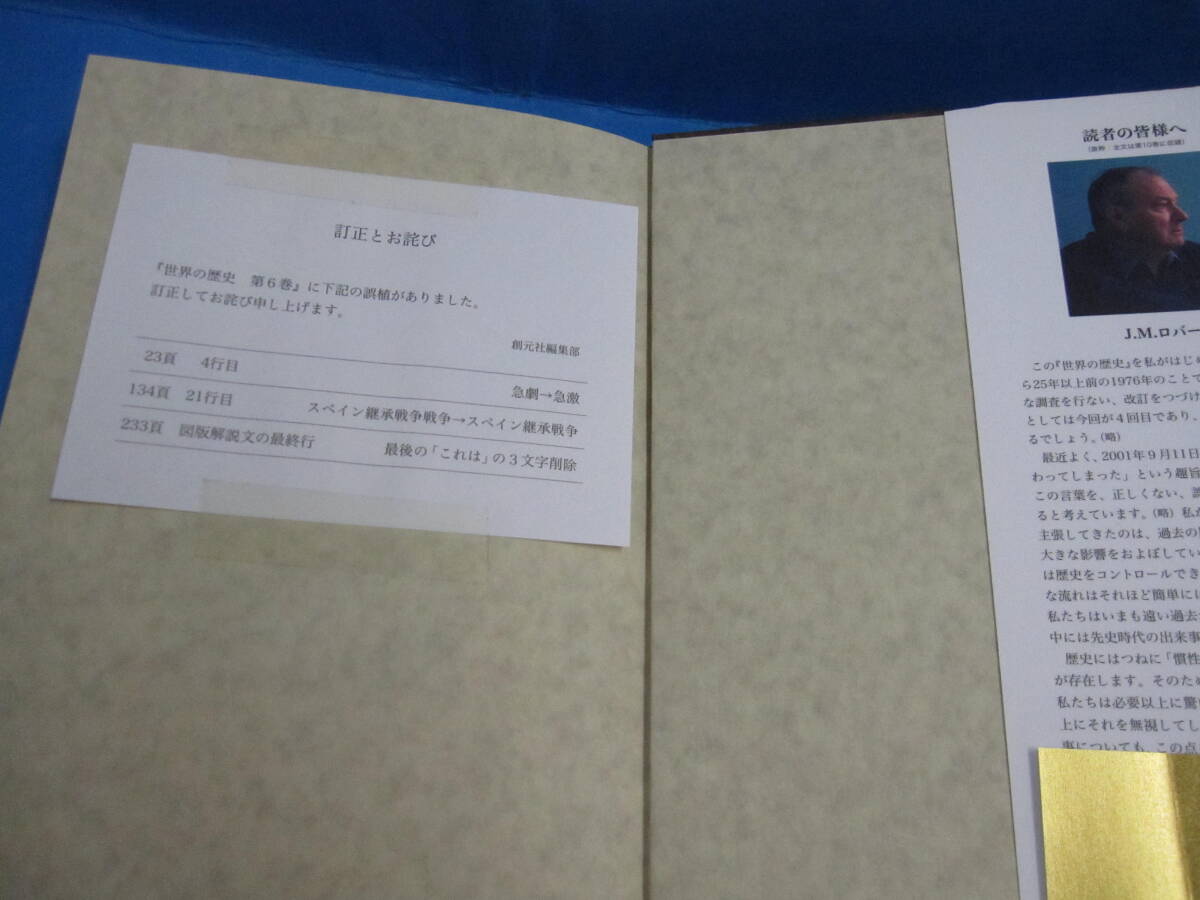 訂正とお詫び
『世界の歴史　第6巻』に下記の誤植がありました。
訂正してお詫び申し上げます。
創元社編集部
23頁　4行目　急劇→急激
134頁　21行目　スペイン継承戦争戦争→スペイン継承戦争
233頁　図版解説文の最終行　最後の「これは」の3文字削除
読者の皆様へ
(抜粋　全文は第10巻に収録)
J.M.ロバー
この『世界の歴史』を私がはじめ
ら25年以上前の1976年のことで
な調査を行ない、改訂をつづけ
としては今回が4回目であり、
るでしょう。(略)
最近よく、2001年9月11日
わってしまった」という趣旨
この言葉を、正しくない、誤
ると考えています。(略) 私が
主張してきたのは、過去の
大きな影響をおよぼしてい
は歴史をコントロールでき
な流れはそれほど簡単に
私たちはいまも遠い過去
中には先史時代の出来事
歴史にはつねに「慣性
が存在します。そのため
私たちは必要以上に驚
上にそれを無視してし
事についても、この点